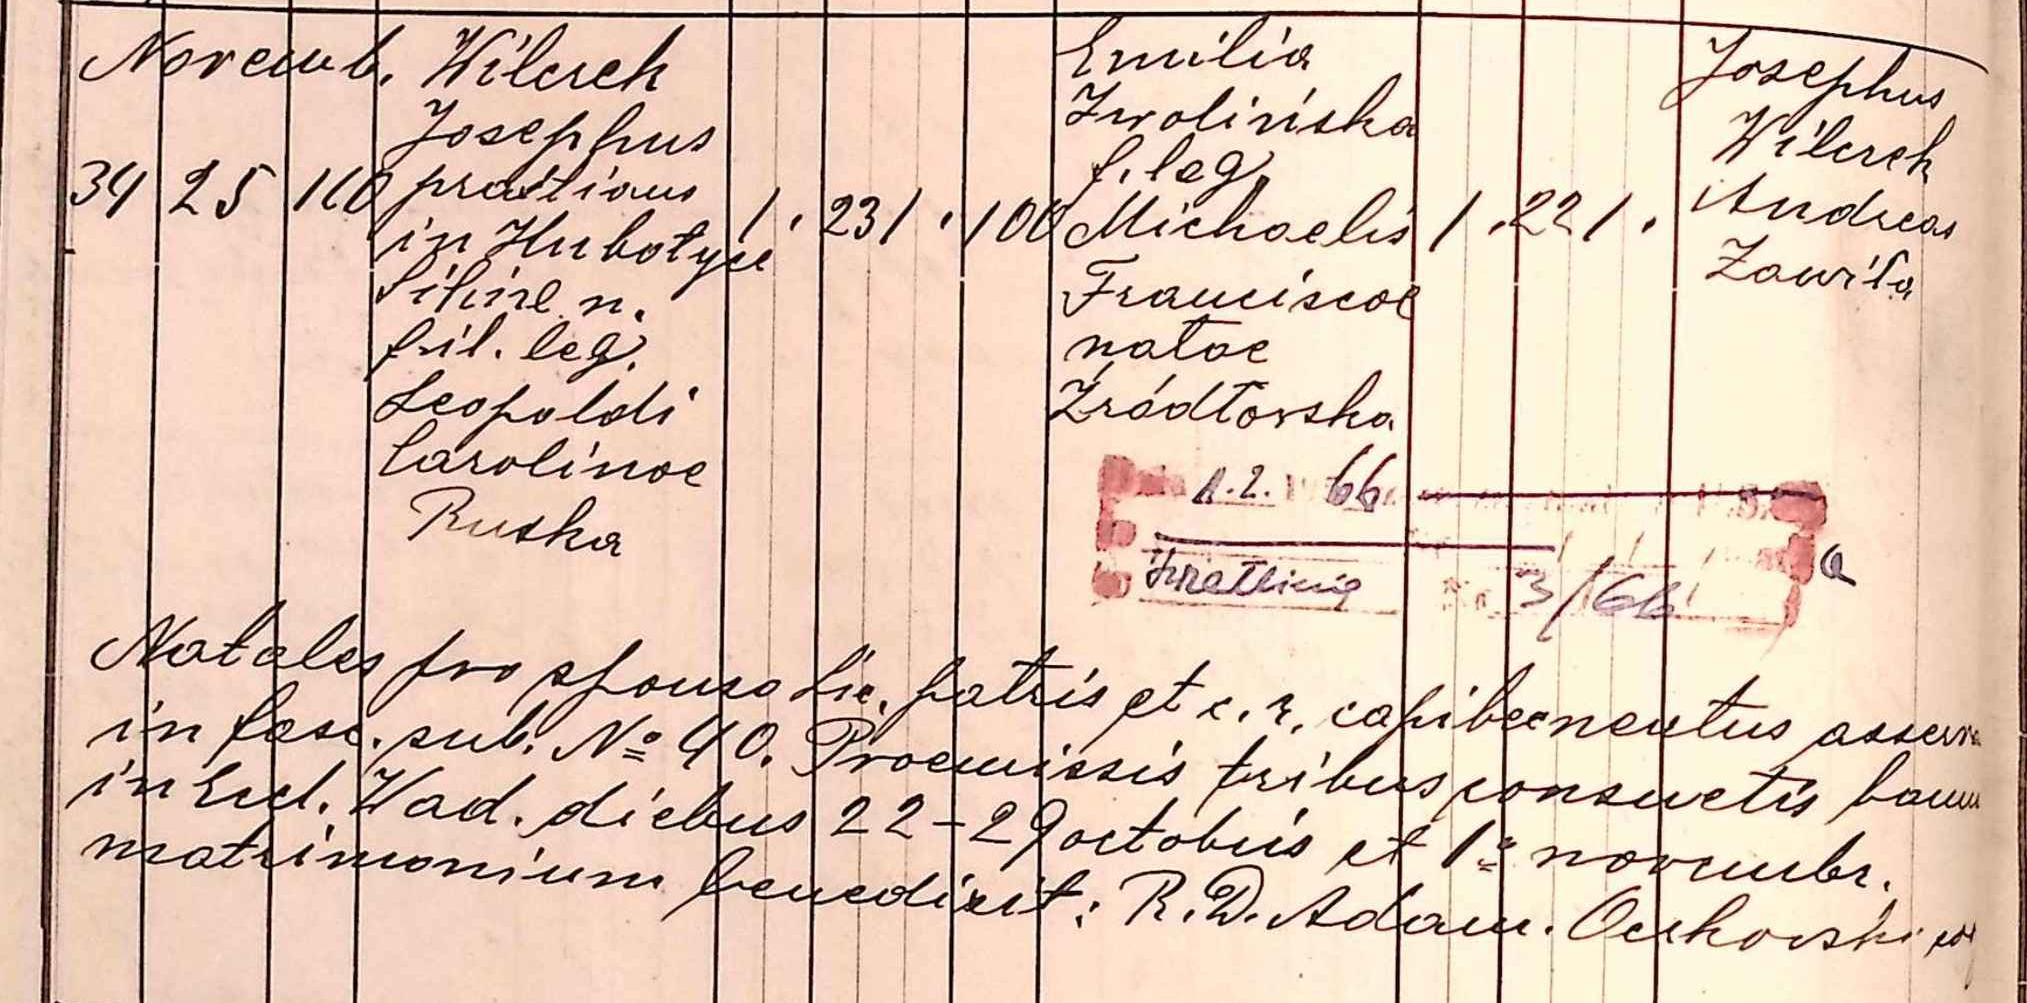 Novemb.
34 25 110
Wilczek
Josephus
in Hubotyń
fil. leg.
Leopoldi
Carolinae
Ruska
1 . 23 1 . 100
Emilia
Zwolińska
f. leg.
Michaelis
Franciscae
natae
Źródłovska
1 . 22 1 .
Josephus
Wilczek
Andreas
Zawiła
1.2. 66
3/66
Natales pro sponso Lic. patris et c. r. asserv
in fasc. sub. № 40. Praemissis tribus consuetis bann
in Eccl. Wad. diebus 22-29 octobris et 1a novembr.
matrimonium benedixit: R. D. Adam.